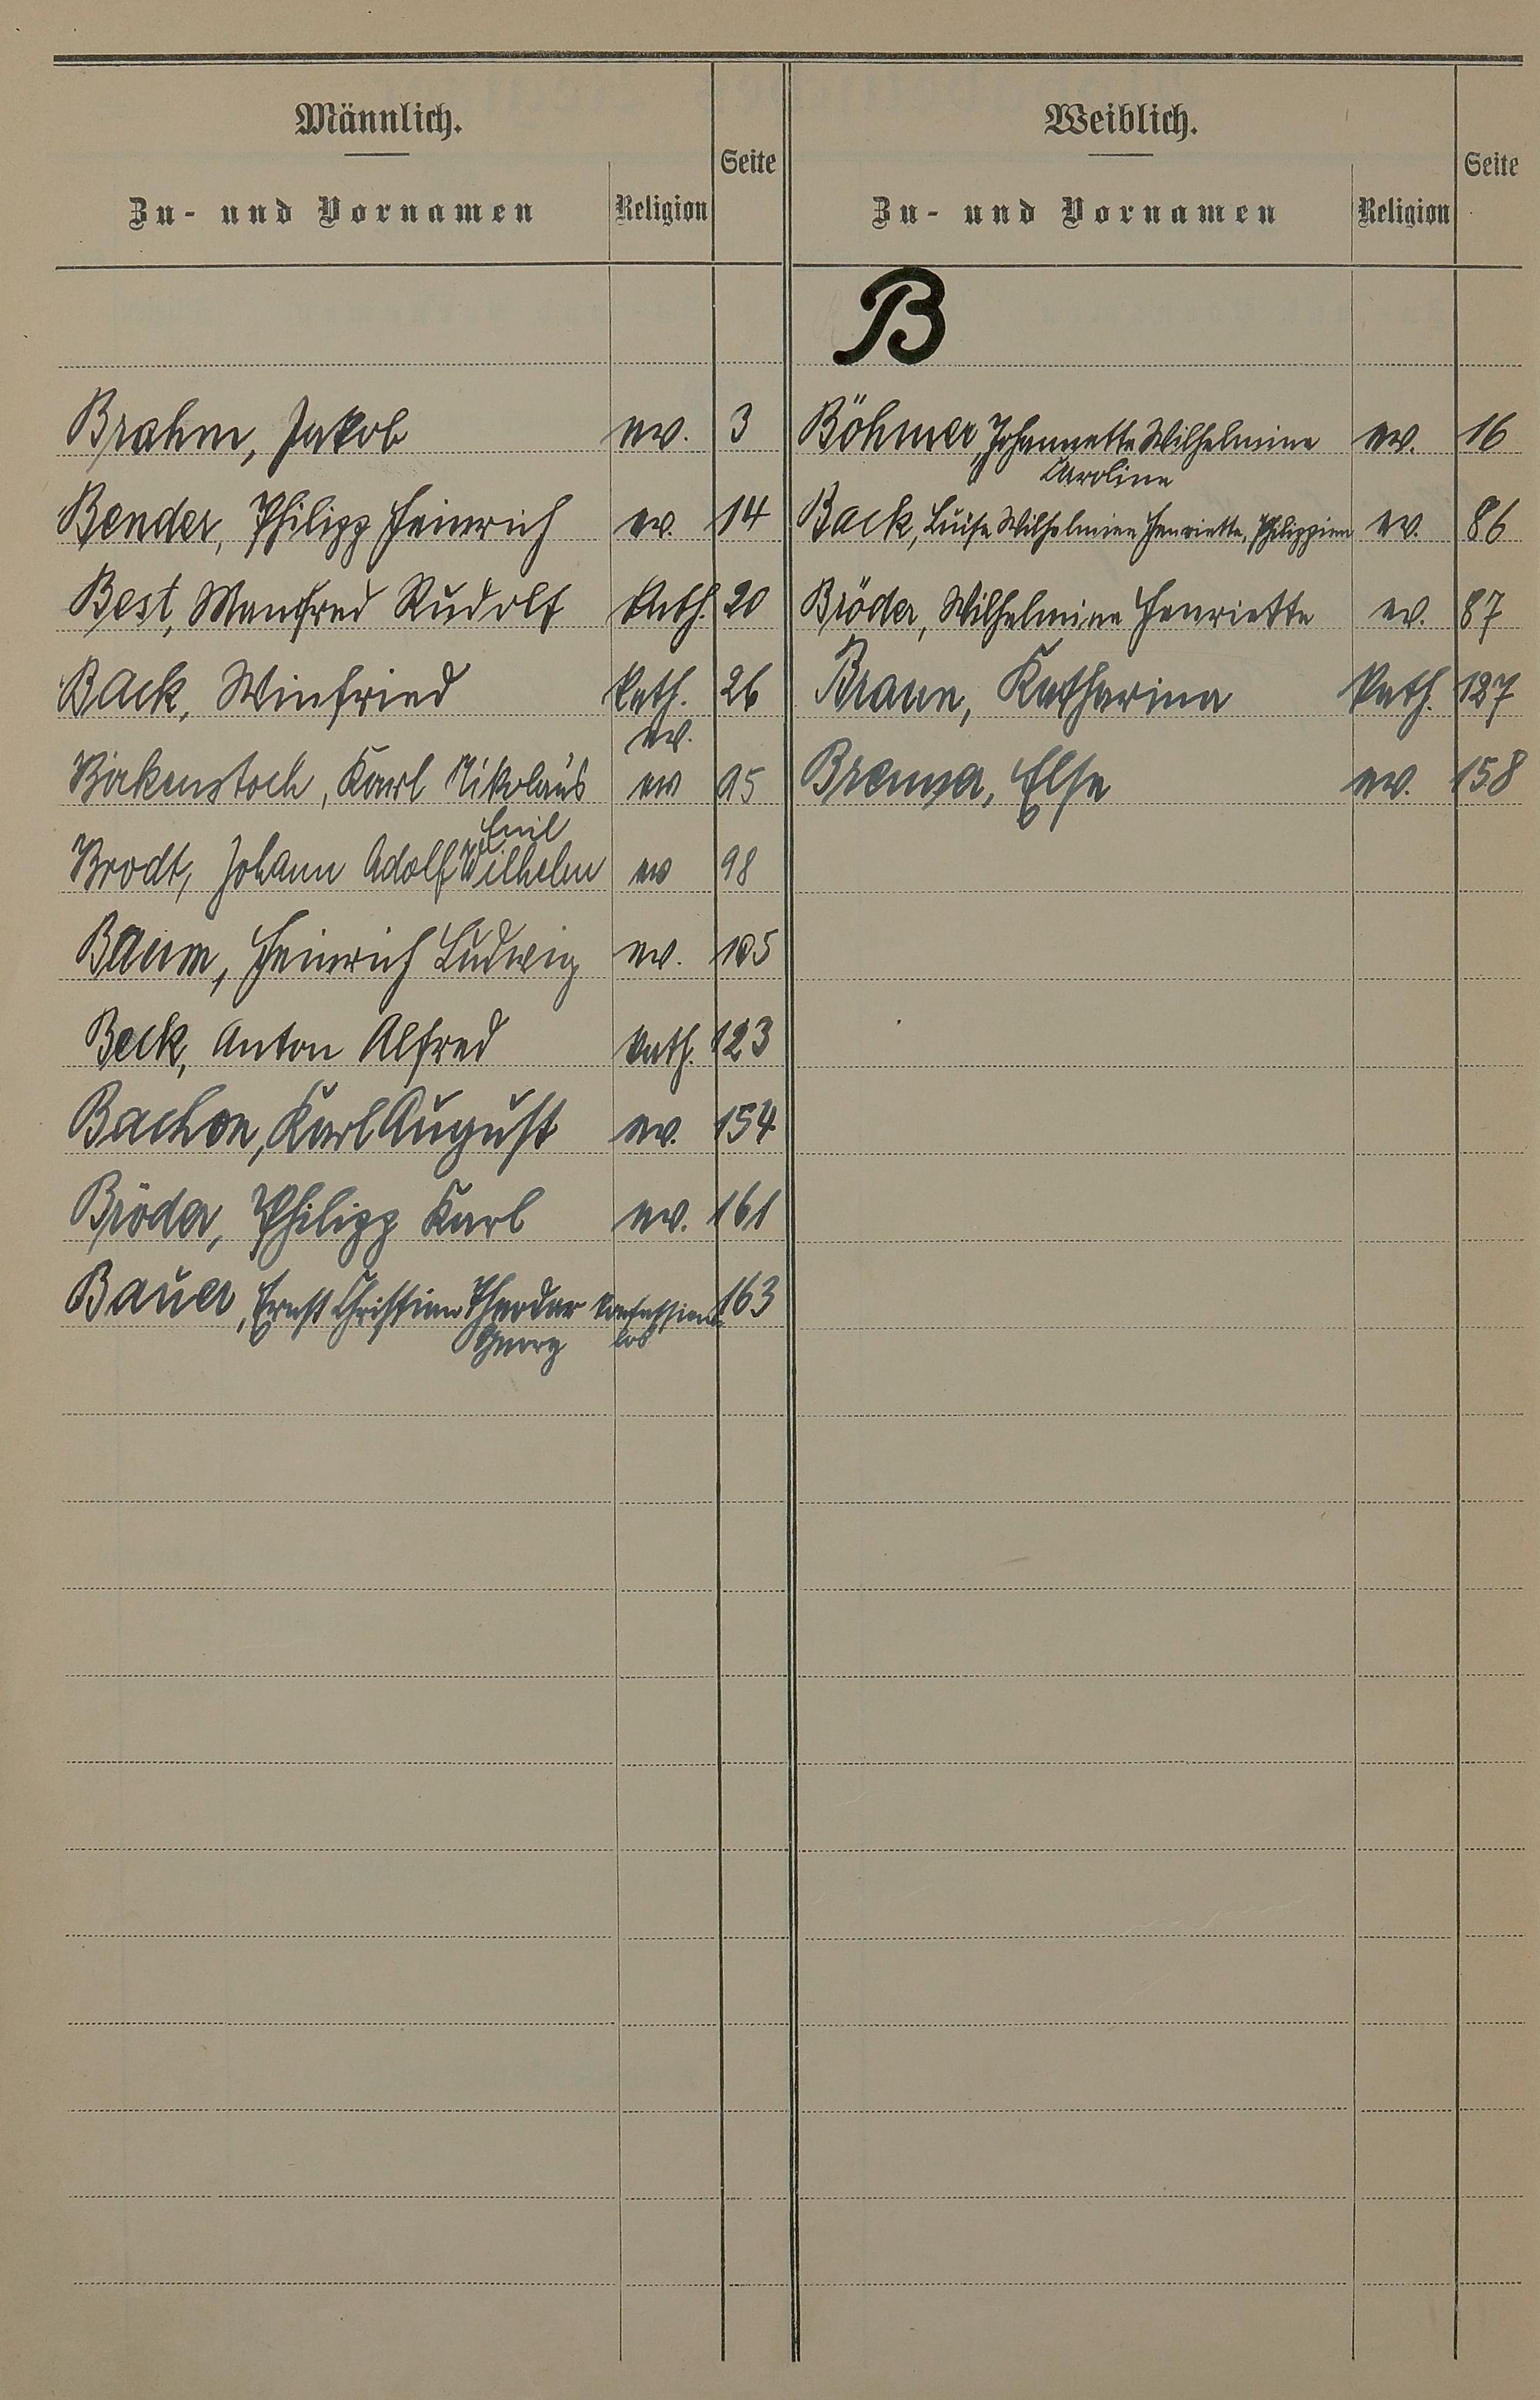 Männlich.
Zu- und Vornamen
Religion
Seite
Weiblich.
Zu- und Vornamen
Religion
Seite
B
Brahm, Jakob ev. 3
Bender, Philipp Heinrich ev. 14
Best, Manfred Rudolf kath. 20
Back, Winfried kath. 26
ev.
Birkenstock, Karl Nikolaus ev 95
Emil
Brodt, Johann Adolf Wilhelm ev 98
Baum, Heinrich Ludwig ev. 105
Beck, Anton Alfred kath. 123
Bachon, Karl August ev. 154
Bröder, Philipp Karl ev. 161
Bauer, Ernst Christian Theodor konfessions- 163
Georg los
Böhmer, Johannette Wilhelmine ev. 16
Caroline
Back, Luise Wilhelmine Henriette, Philippine ev. 86
Bröder, Wilhelmine Henriette ev. 87
Braun, Katharina kath. 127
Else ev. 158